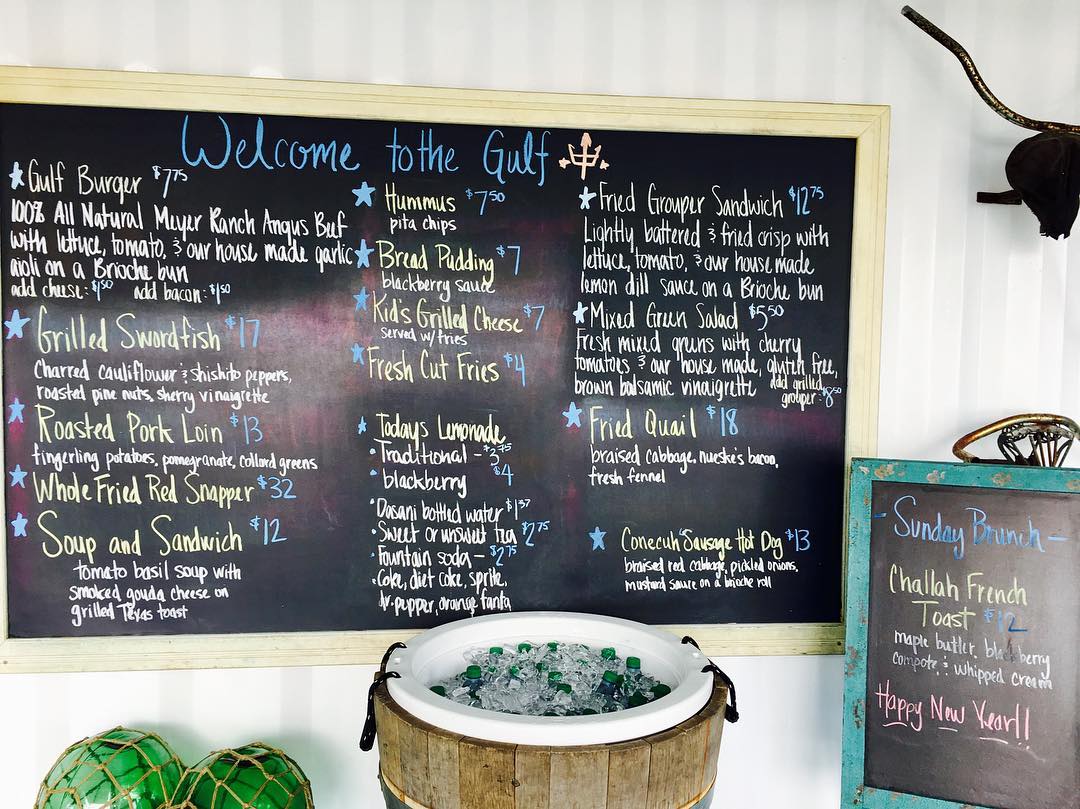 Welcome to the Gulf
Gulf Burger $7.75
100% All Natural Meyer Ranch Angus Beef
with lettuce, tomato, & our house made garlic
aioli on a Brioche bun
add cheese: $1.50 add bacon: $1.50
Grilled Swordfish $17
Charred cauliflower & shishito peppers,
roasted pine nuts, sherry vinaigrette
Roasted Pork Loin $13
fingerling potatoes, pomegranate, collard greens
Whole Fried Red Snapper $32
Soup and Sandwich $12
tomato basil soup with
smoked gouda cheese on
grilled Texas toast
Hummus $7.50
pita chips
Bread Pudding $7
blackberry sauce
Kid's Grilled Cheese $7
served w/fries
Fresh Cut Fries $4
Todays Lemonade
Traditional - $3.75
blackberry $4
Dasani bottled water $1.37
Sweet or unsweet tea $2.75
Fountain soda - $2.75
Coke, diet coke, sprite,
dr. pepper, orange fanta
Fried Grouper Sandwich $12.75
Lightly battered & fried crisp with
lettuce, tomato, & our house made
lemon dill sauce on a Brioche bun
Mixed Green Salad $5.50
Fresh mixed greens with cherry
tomatoes & our house made, gluten free,
brown balsamic vinaigrette add grilled
grouper: $8.50
Fried Quail $18
braised cabbage, nueske's bacon,
fresh fennel
Conecuh Sausage Hot Dog $13
braised red cabbage, pickled onions,
mustard sauce on a brioche roll
- Sunday Brunch -
Challah French
Toast $12
maple butter, blackberry
compote & whipped cream
Happy New Year!!